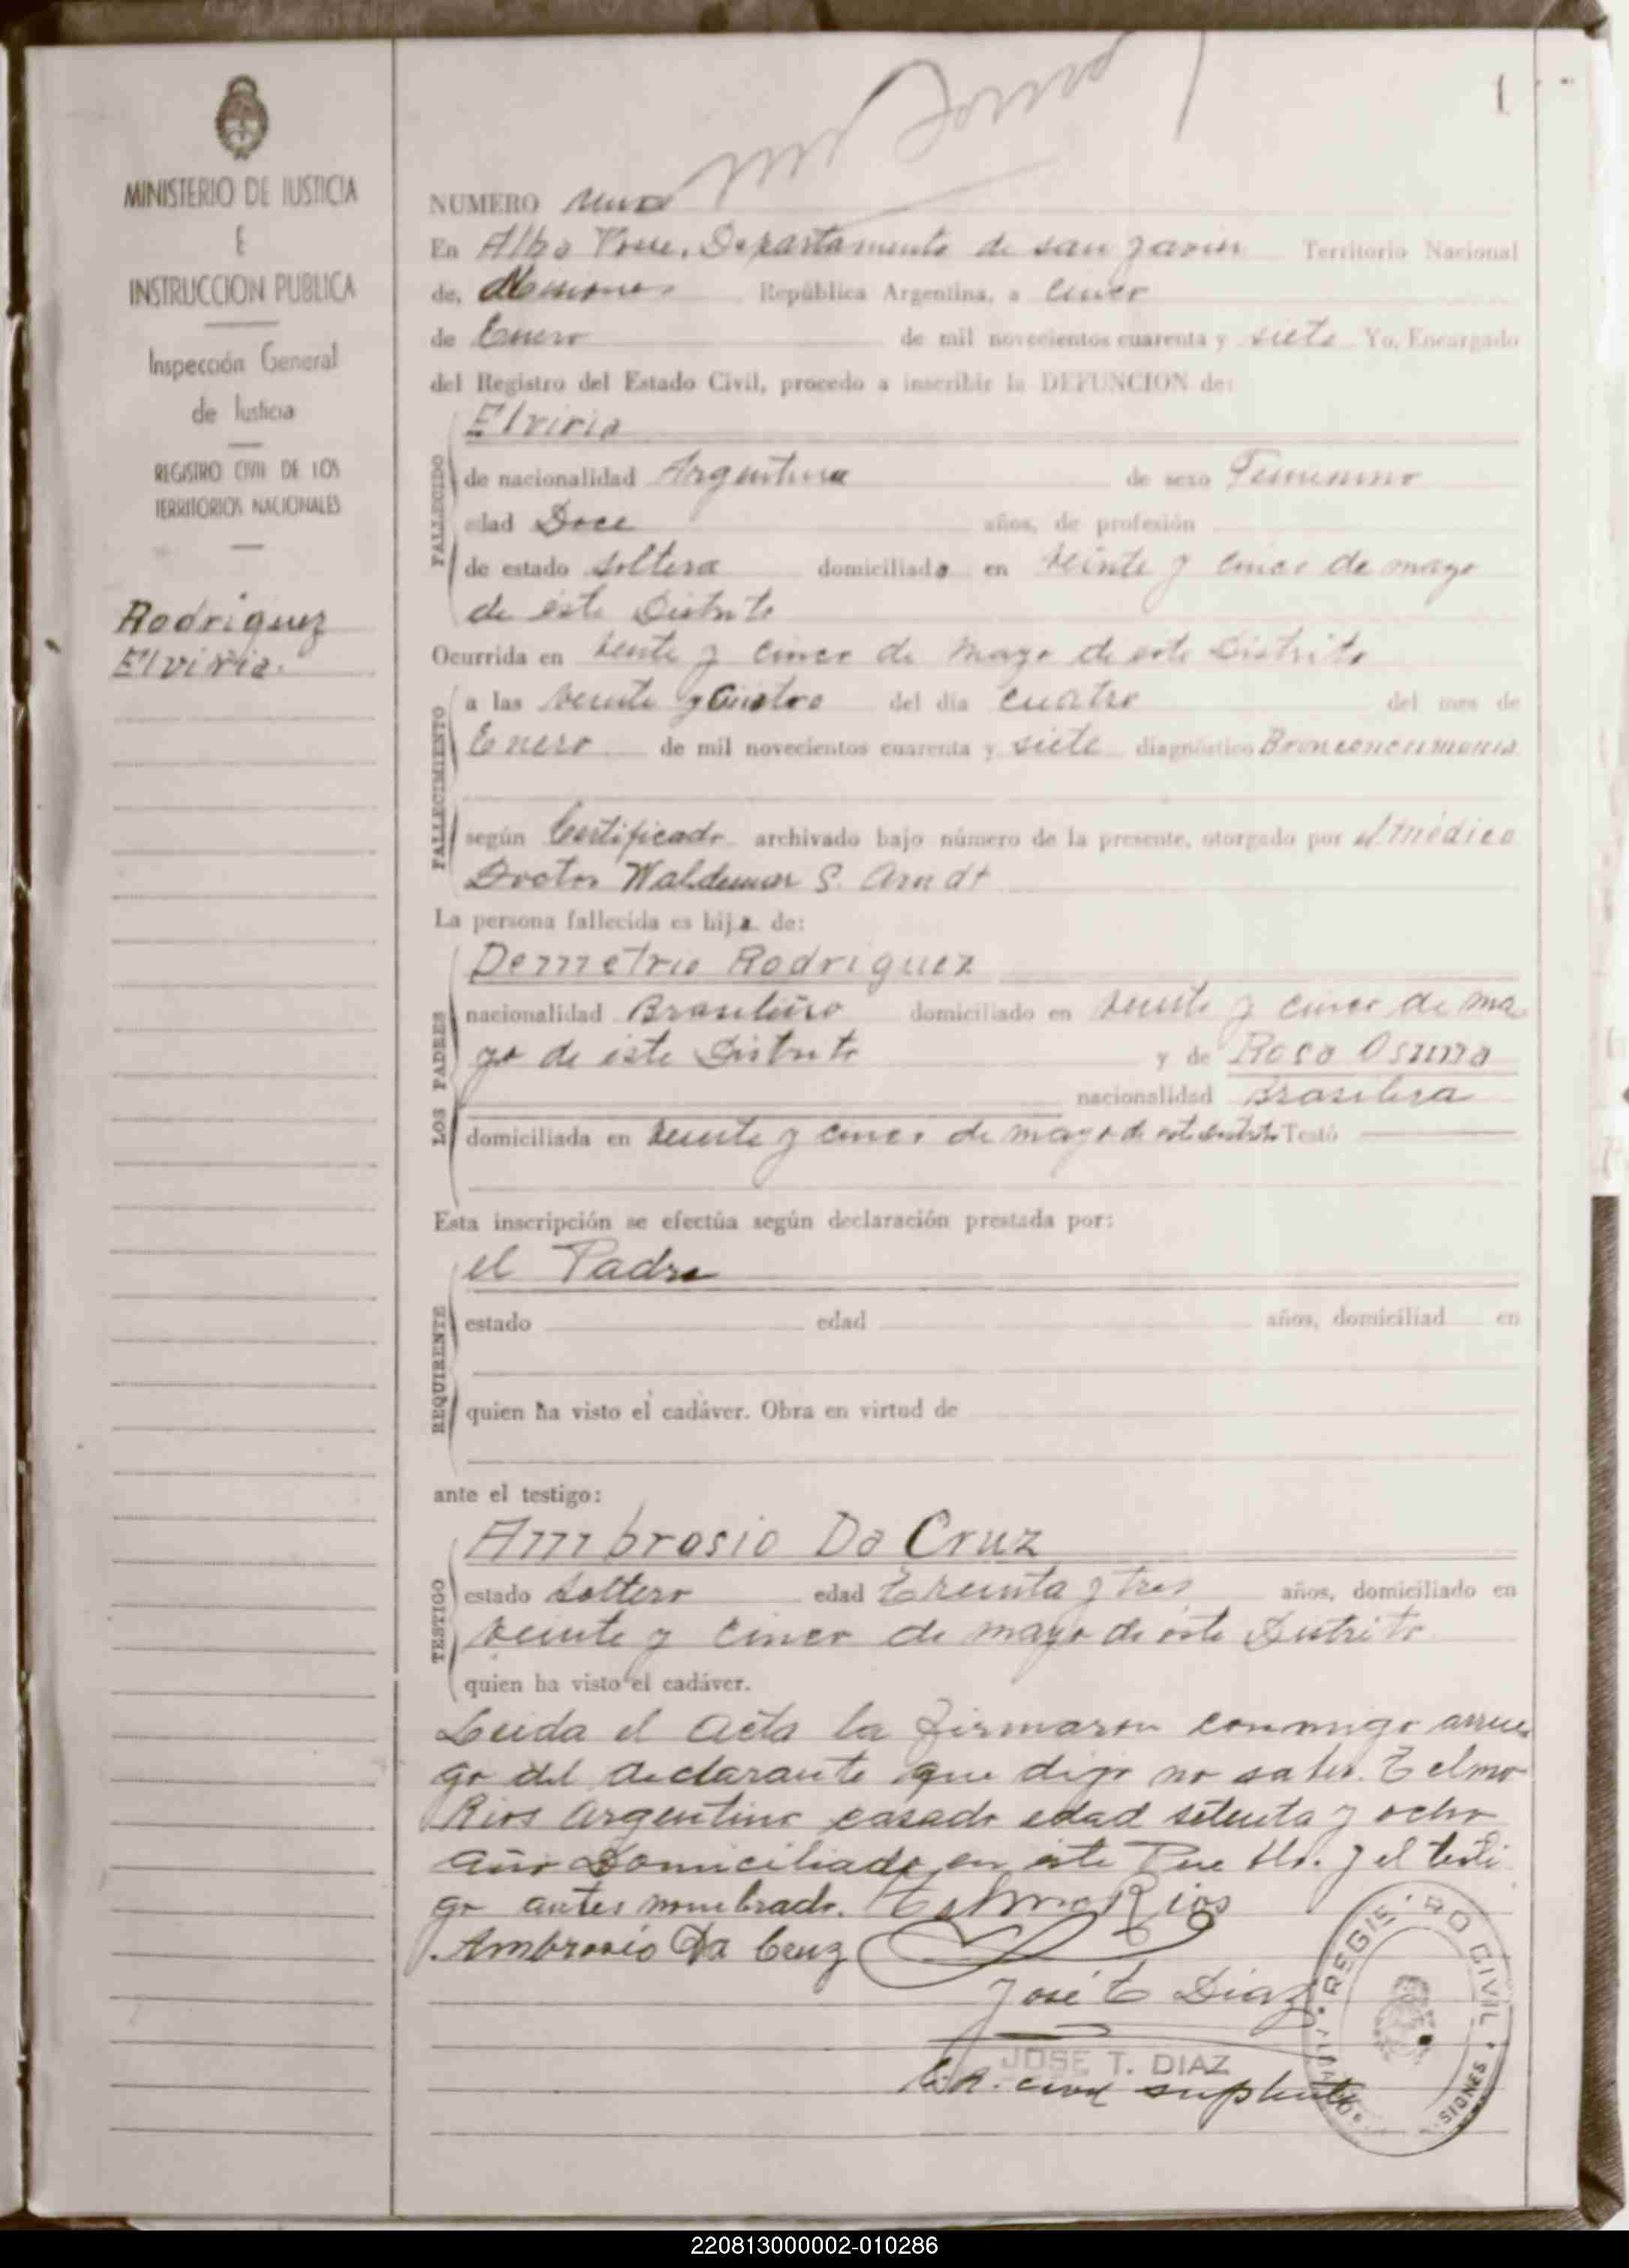 1
MINISTERIO DE JUSTICIA
E
INSTRUCCION PUBLICA
Inspección General
de Justicia
REGISTRO CIVIL DE LOS
TERRITORIOS NACIONALES
Rodriguez
Elviria.
NUMERO uno
En Alba Posse, Departamento de san Javier Territorio Nacional
de, Misiones República Argentina, a cinco
de Enero de mil novecientos cuarenta y siete Yo, Encargado
del Registro del Estado Civil, procedo a inscribir la DEFUNCION de:
FALLECIDO
Elviria
de nacionalidad Argentina de sexo Femenino
edad Doce años, de profesión
de estado soltera domiciliada en veinte y cinco de mayo
de este Distrito
Ocurrida en veinte y cinco de mayo de este Distrito
FALLECIMIENTO
a las veinte y cuatro del día cuatro del mes de
Enero de mil novecientos cuarenta y siete diagnóstico Bronconeumonia
según Certificado archivado bajo número de la presente, otorgado por el médico
Doctor Waldemar S. Arndt
La persona fallecida es hija de:
LOS PADRES
Demetrio Rodriguez
nacionalidad Brasileño domiciliado en veinte y cinco de ma
yo de este Distrito y de Rosa Osuna
nacionalidad Brasilera
domiciliada en veinte y cinco de mayo de este distrito Testó
Esta inscripción se efectúa según declaración prestada por:
REQUIRENTE
el Padre
estado edad años, domiciliad en
quien ha visto el cadáver. Obra en virtud de
ante el testigo:
TESTIGO
Ambrosio Da Cruz
estado soltero edad Treinta y tres años, domiciliado en
veinte y cinco de mayo de este Distrito
quien ha visto el cadáver.
Leida el acta la firmaron conmigo arrue
go del declarante que dijo no saber. Telmo
Rios Argentino casado edad setenta y ocho
año Domiciliado en este Pueblo. y el testi
go antes nombrado. Telmo Rios
Ambrosio Da Cruz
José T Diaz
JOSE T. DIAZ
civil suplente
REGISTRO CIVIL
220813000002-010286